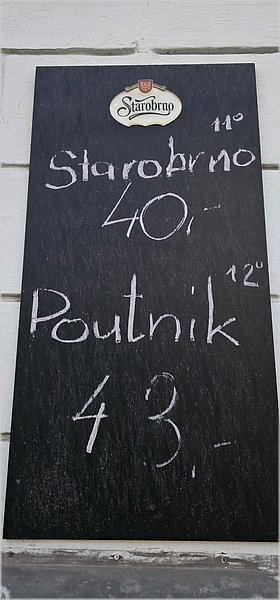 Starobrno
11°
Starobrno
40,-
12°
Poutnik
43,-